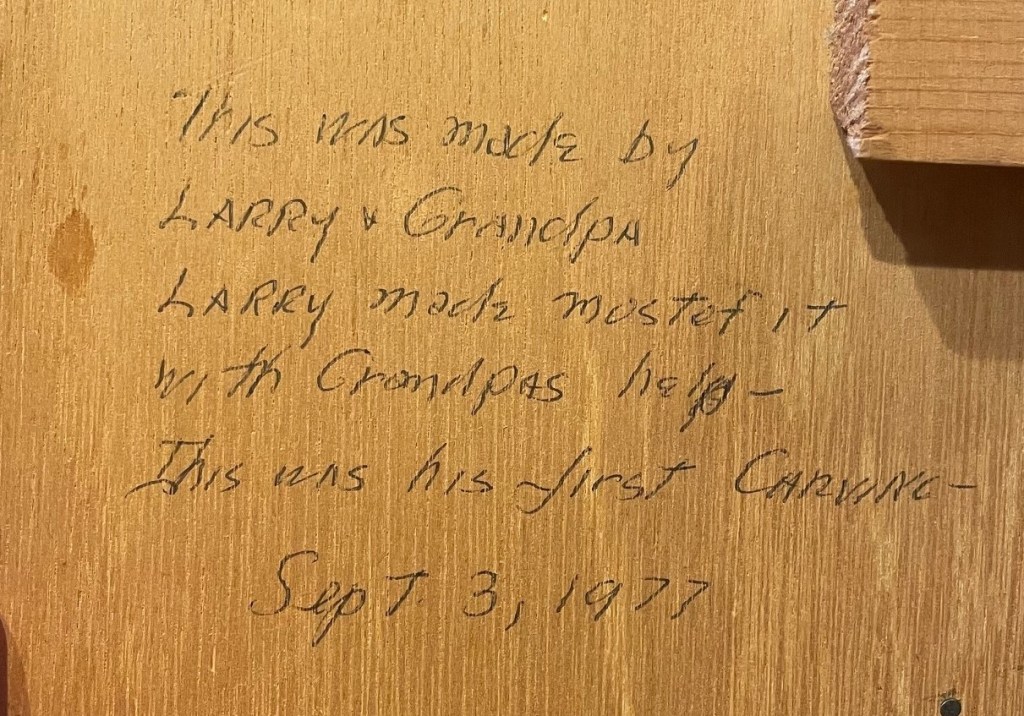 This was made by
LARRY & GrandpA
LARRY made most of it
with GrandpAs help-
This was his first CARVING-
Sept. 3, 1977